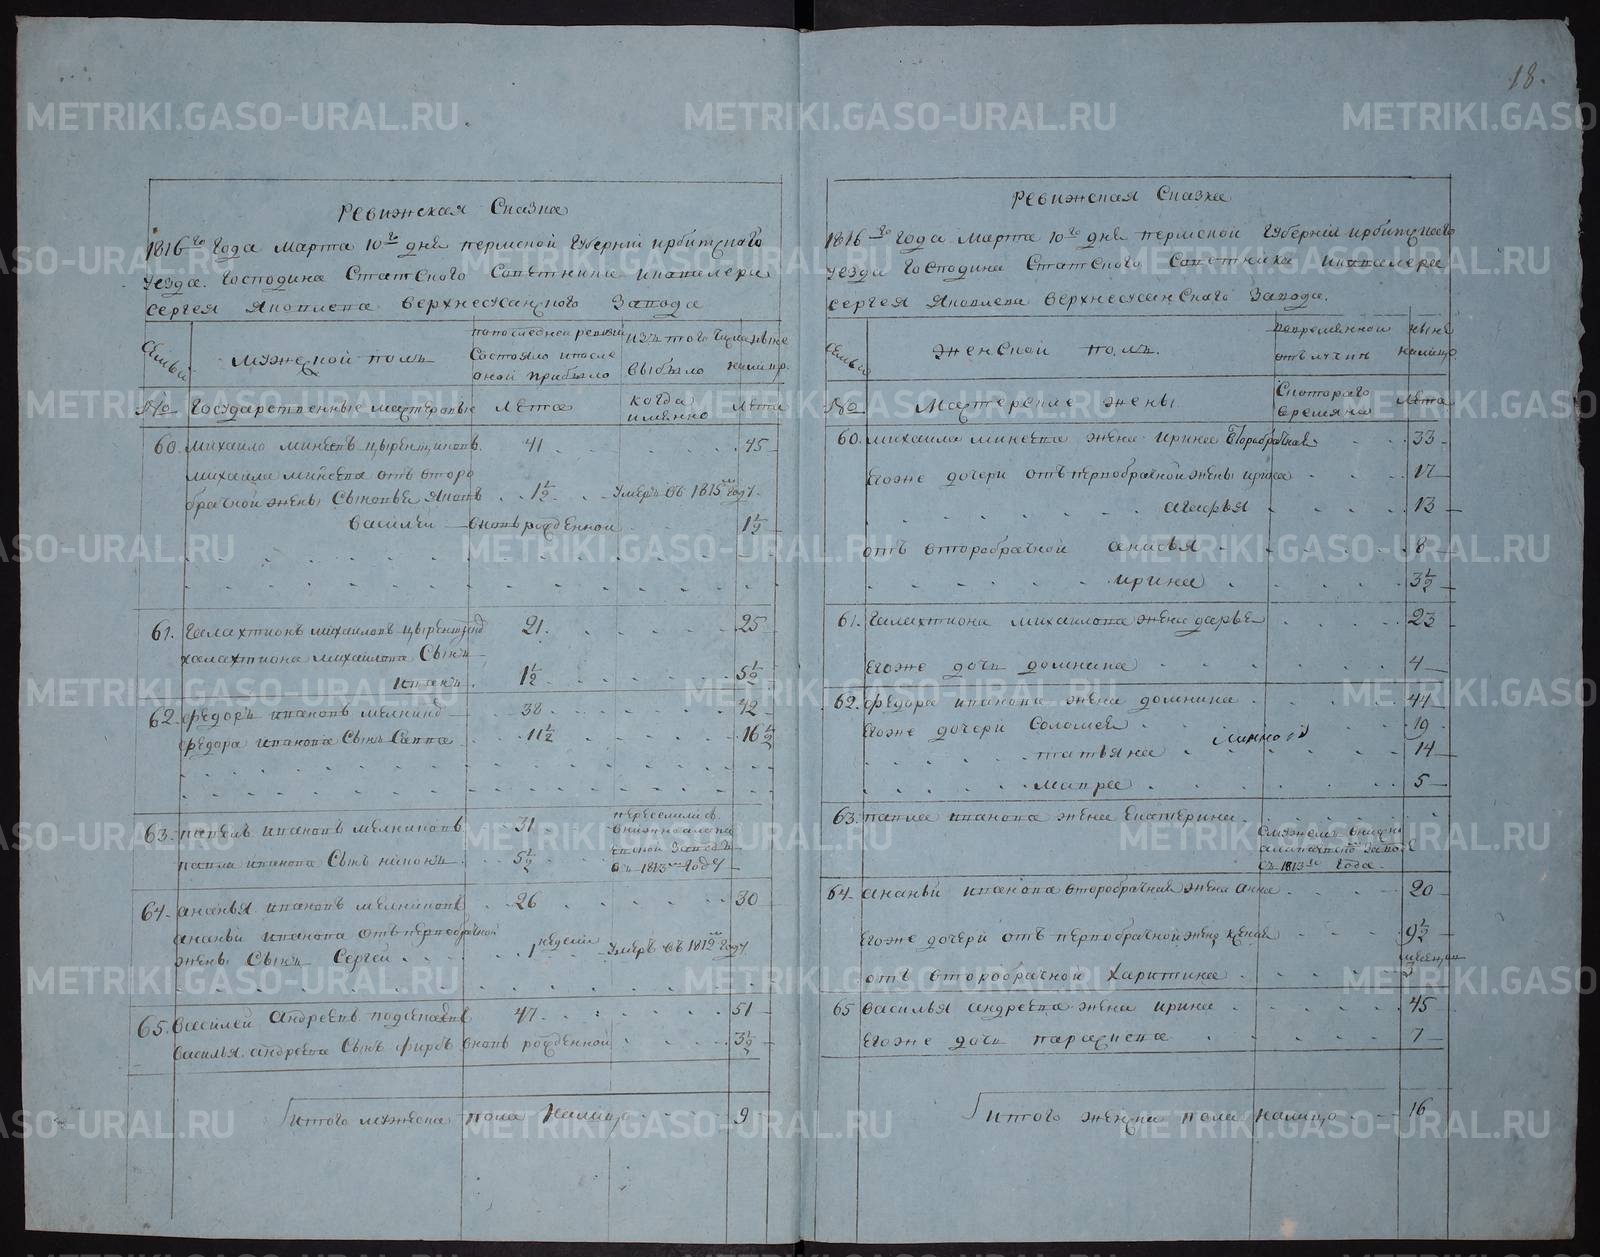 18.
Ревижская Сказка
1816го Года Марта 10го дня пермской Губернии ирбитского
уезда Господина Статского Советника икавалера
Сергея Яковлева верхнесусанского Завода
Семьи
мужеской полъ
попоследней ревизии
Состояло ипосле
оной прибыло
изъ того Числа
выбыло
ныне
налицо
No
Государственные мастеровые
Лета
когда
именно
Лета
60. михаило минеевъ
41
45
михаила минеева отъ второ
брачной жены Сыновья Яковъ
1 1/2
Умеръ въ 1815м Году
василей вновь рожденной
1 1/2
61. Галахтионъ михаиловъ
21
25
халахтиона михаилова Сынъ
иванъ
1 1/2
5 1/2
62. федоръ ивановъ
38
42
федора иванова Сынъ Савва
11 1/2
16 1/2
63. павелъ ивановъ мелниковъ
31
переселился
павла иванова Сынъ никонъ
5 1/2
въ 1813м Году
64. ананья ивановъ мелниковъ
26
30
ананьи иванова отъ первобрачной
жены Сынъ Сергей
1 недели
Умеръ въ 1812м Году
65. василей андреевъ
47
51
василья андреева Сынъ фирсъ вновь рожденной
3 1/2
Итого мужска пола налицо
9
Ревижская Сказка
1816го Года Марта 10го дня пермской Губернии ирбитского
уезда Господина Статского Советника икавалера
Сергея Яковлева верхнесусанского Завода.
Семьи
женской полъ.
вовременной
отълучки
ныне
налицо
No
Мастерские жены
Скотораго
времяни
Лета
60. михаила минеева жена ирина Второбрачная
33
Егоже дочери отъ первобрачной жены ирина
17
агафья
13
отъ второбрачной анисья
8
ирина
3 1/2
61. Галахтиона михаилова жена дарья
23
Егоже дочь домника
4
62. федора иванова жена домника
41
Егоже дочери Соломея
19
татьяна
14
мавра
5
63. павла иванова жена Екатерина
Смужемъ
съ 1813го Года
64. ананьи иванова второбрачная жена анна
20
Егоже дочери отъ первобрачной жены ксения
9 1/2
месяцы
отъ второбрачной Харитина
3
65 василья андреева жена ирина
45
Егоже дочь парасковья
7
Итого женска пола налицо
16
METRIKI.GASO-URAL.RU